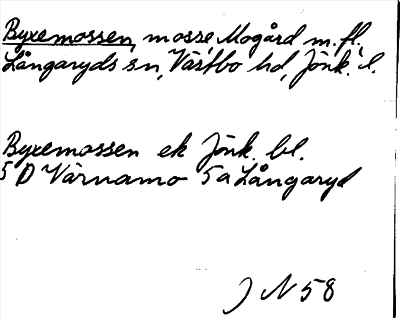 Byxemossen, mosse, Mogård m.fl.,
Långaryds sn, Västbo hd, Jönk. l.
Byxemossen ek Jönk. bl.
5 D Värnamo 5a Långaryd
J N 58